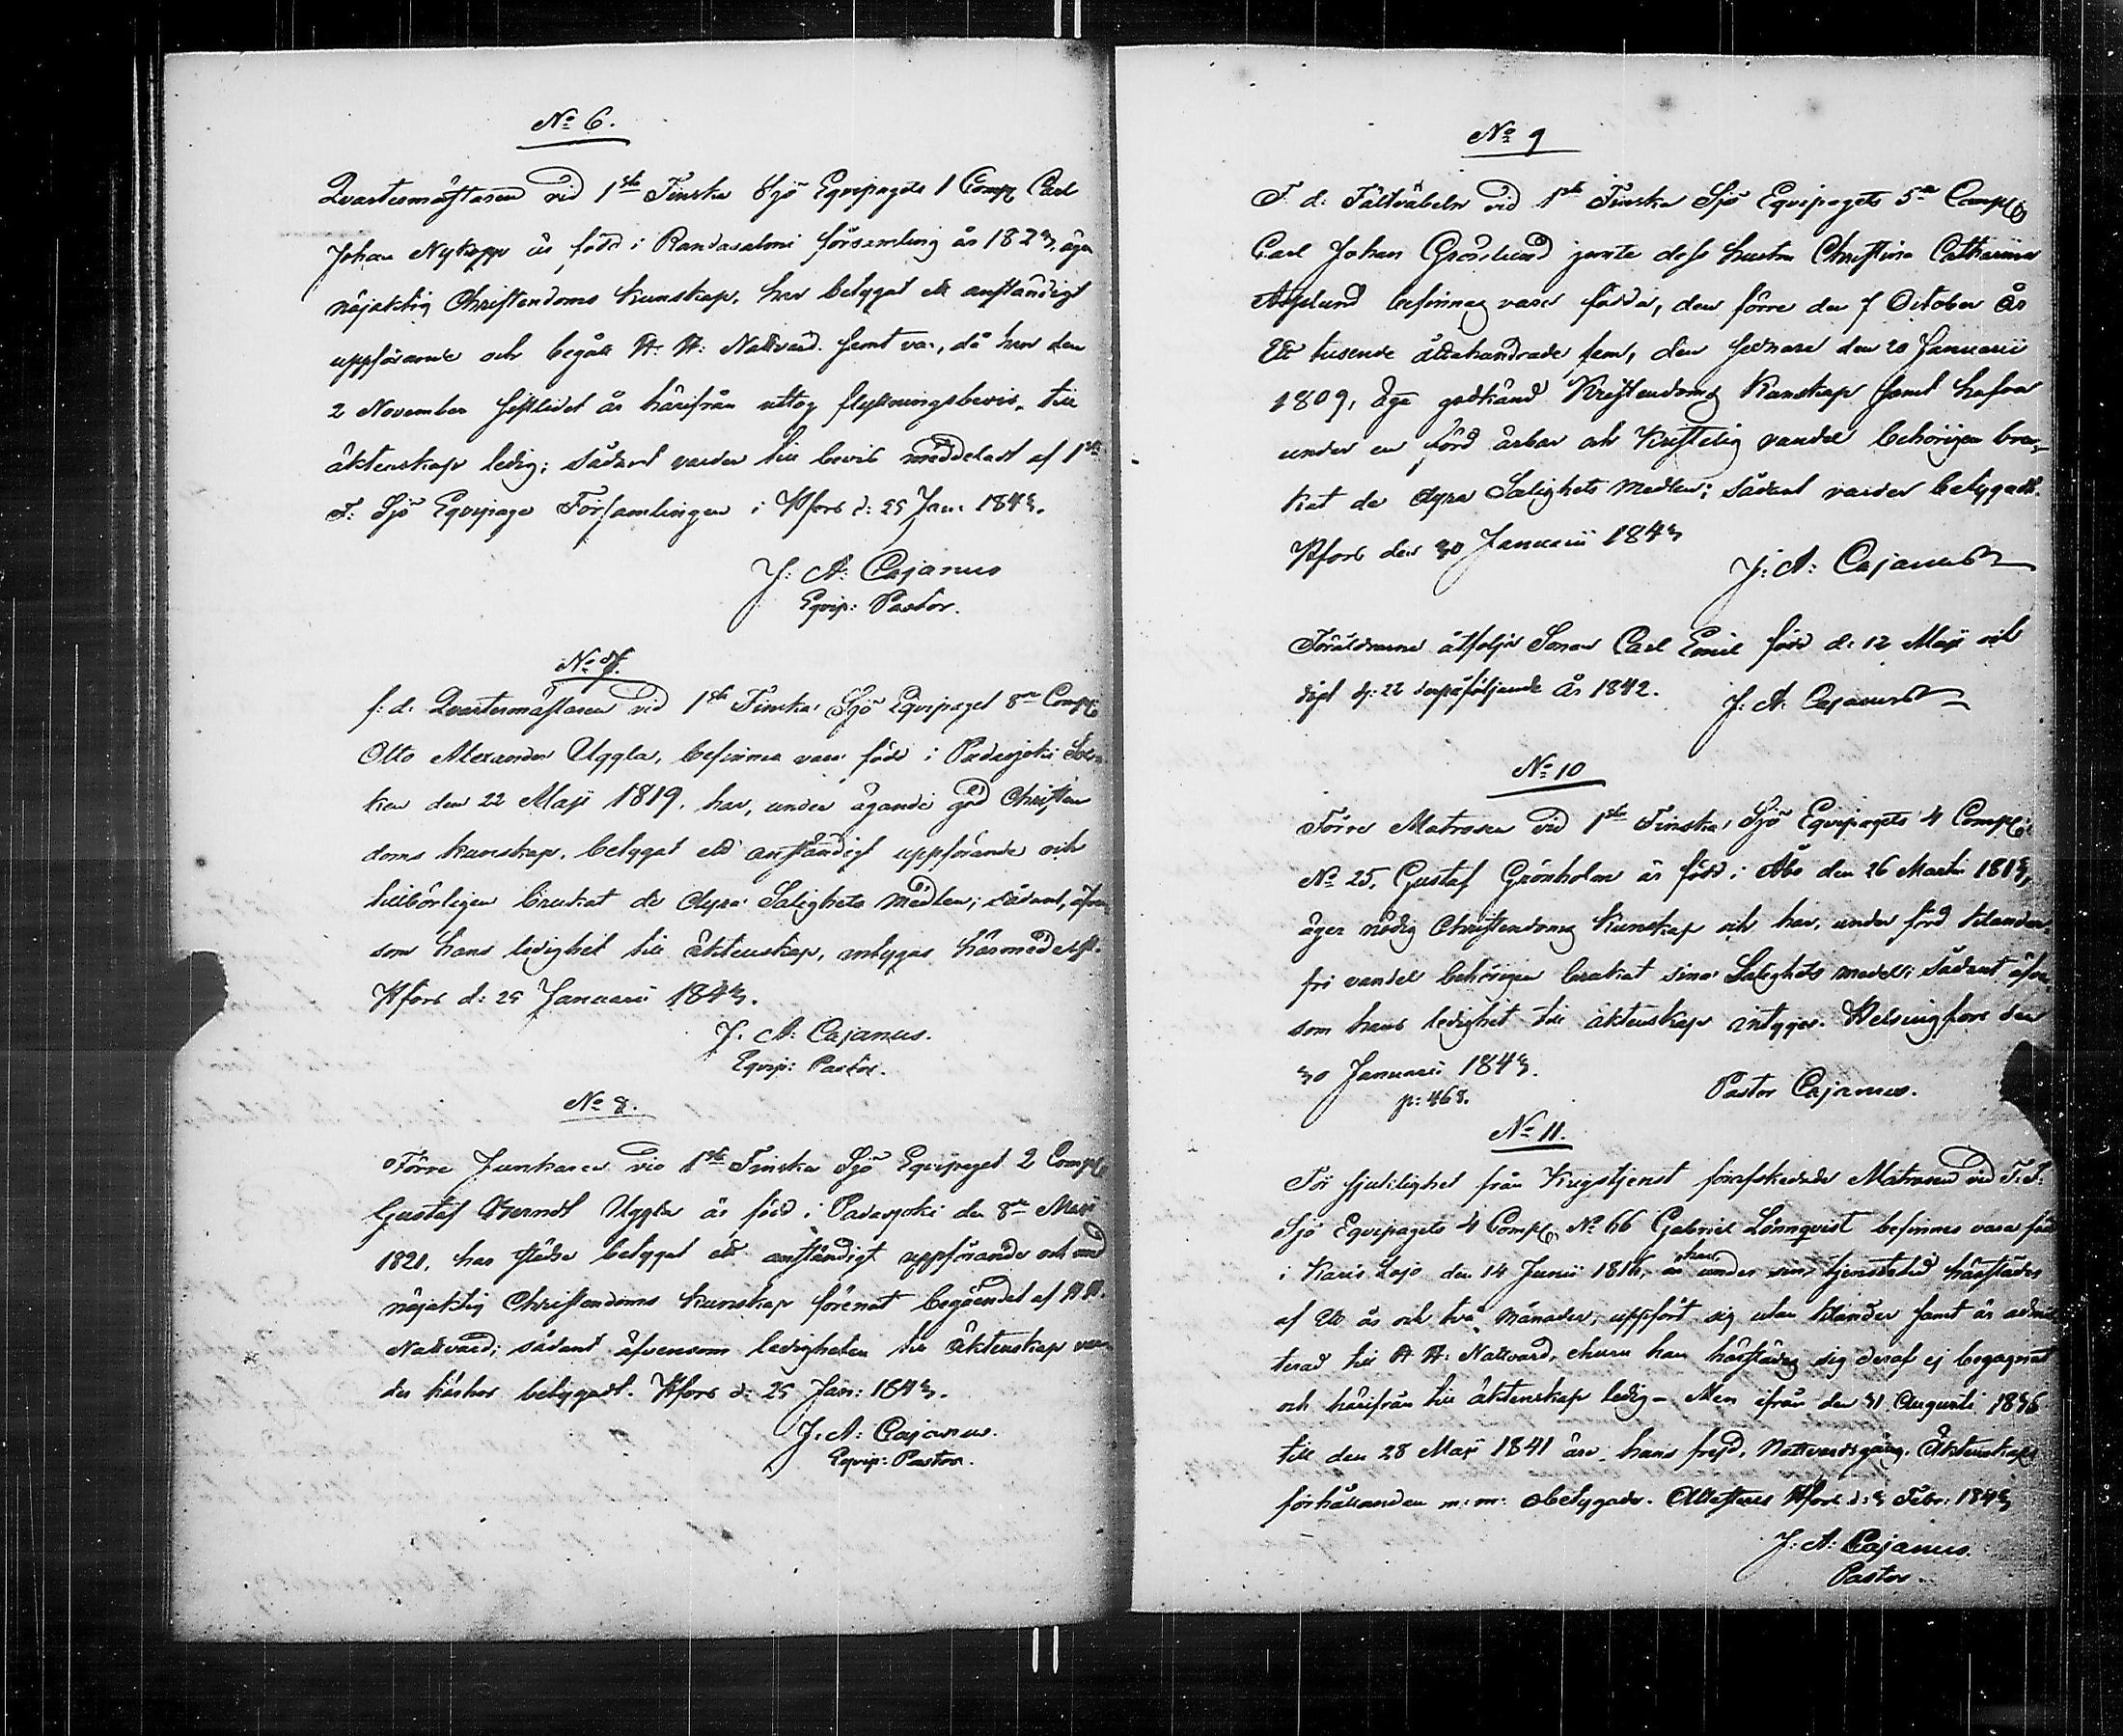 No 6.
Qvartersmästaren vid 1sta Finska Sjö Equipagets 1 Comp. Carl
Johan Nykopp är född i Randasalmi församling år 1823, äger
nöjaktig Christendoms kunskap, har betygat ett anständigt
uppförande och begått H. H. Nattvard samt var, då han den
2 November sistlidet år härifrån uttog flyttningsbevis, till
äktenskap ledig; sådant varder till bevis meddeladt af 1sta
F. Sjö Equipage Församlingen i Hfors d: 25 Jan. 1843.
J: A: Cajanus
Eqvip: Pastor.
No 7.
f: d. Qvartersmästaren vid 1sta Finska Sjö Equipaget 8de Comp:
Otto Alexander Uggla, befinnes vara född i Padasjoki Soc-
ken den 22 Maji 1819, har, under ägande god Christen
doms kunskap, betygat ett anständigt uppförande och
tillbörligen brukat de dyra Salighets medlen; sådant, äfven
som hans ledighet till äktenskap, intygas härmedelst.
Hfors d: 25 Januarii 1843.
J. A: Cajanus.
Eqvip: Pastor.
No 8.
Förre Junkaren vid 1sta Finska Sjö Equipaget 2 Comp:
Gustaf Berndt Uggla är född i Padasjoki den 8de Maji
1821, har städse betygat ett anständigt uppförande och med
nöjaktig Christendoms kunskap förenat begåendet af H. H.
Nattvard; sådant äfvensom ledigheten till äktenskap var-
der härhos betygadt. Hfors d: 25 Jan: 1843.
J. A: Cajanus.
Eqvip: Pastor.
No 9
F. d. Fältväbeln vid 1sta Finska Sjö Equipagets 5te Comp:
Carl Johan Grönlund jemte dess hustru Christina Catharina
Asplund befinnas vara födda, den förre den 7 October år
Ett tusende åttahundrade fem, den sednare den 20 Januarii
1809, äga godkänd Kristendoms Kunskap samt hafva
under en förd ärbar och Kristelig vandel behörigen bru-
kat de dyra Salighets medlen; sådant varder betygadt.
Hfors den 30 Januarii 1843
J: A: Cajanus
Föräldrarne åtföljer Sonen Carl Emil född d. 12 Maji och
döpt d: 22 derpåföljande år 1842.
J. A: Cajanus
No 10
Förre Matrosen vid 1sta Finska Sjö Equipagets 4 Comp:
No 25. Gustaf Grönholm är född i Åbo den 26 Martii 1813,
äger nödig Christendoms Kunskap och har, under förd klander-
fri vandel behörigen brukat sina Salighets medel; sådant äfven
som hans ledighet till äktenskap intygas. Helsingfors den
30 Januarii 1843.
p: 468.
Pastor Cajanus.
No 11.
För sjuklighet från Krigstjenst förafskedade Matrosen vid F. F:
Sjö Equipagets 4 Comp. No 66 Gabriel Lönnqvist befinnes vara född
i Karis Lojo den 14 Junii 1816, har under sin tjenstetid härstädes
af Ett år och två månader, uppfört sig utan klander samt är admit-
terad till H. H: Nattvard, ehuru han härstädes sig deraf ej begagnat
och härifrån till äktenskap ledig – Men ifrån den 31 Augusti 1836
till den 28 Maji 1841 äro hans frejd, Nattvardsgång, Äktenskaps
förhållanden m: m: obetygade. Attesteras Hfors d: 3 Febr: 1843
J: A: Cajanus.
Pastor.